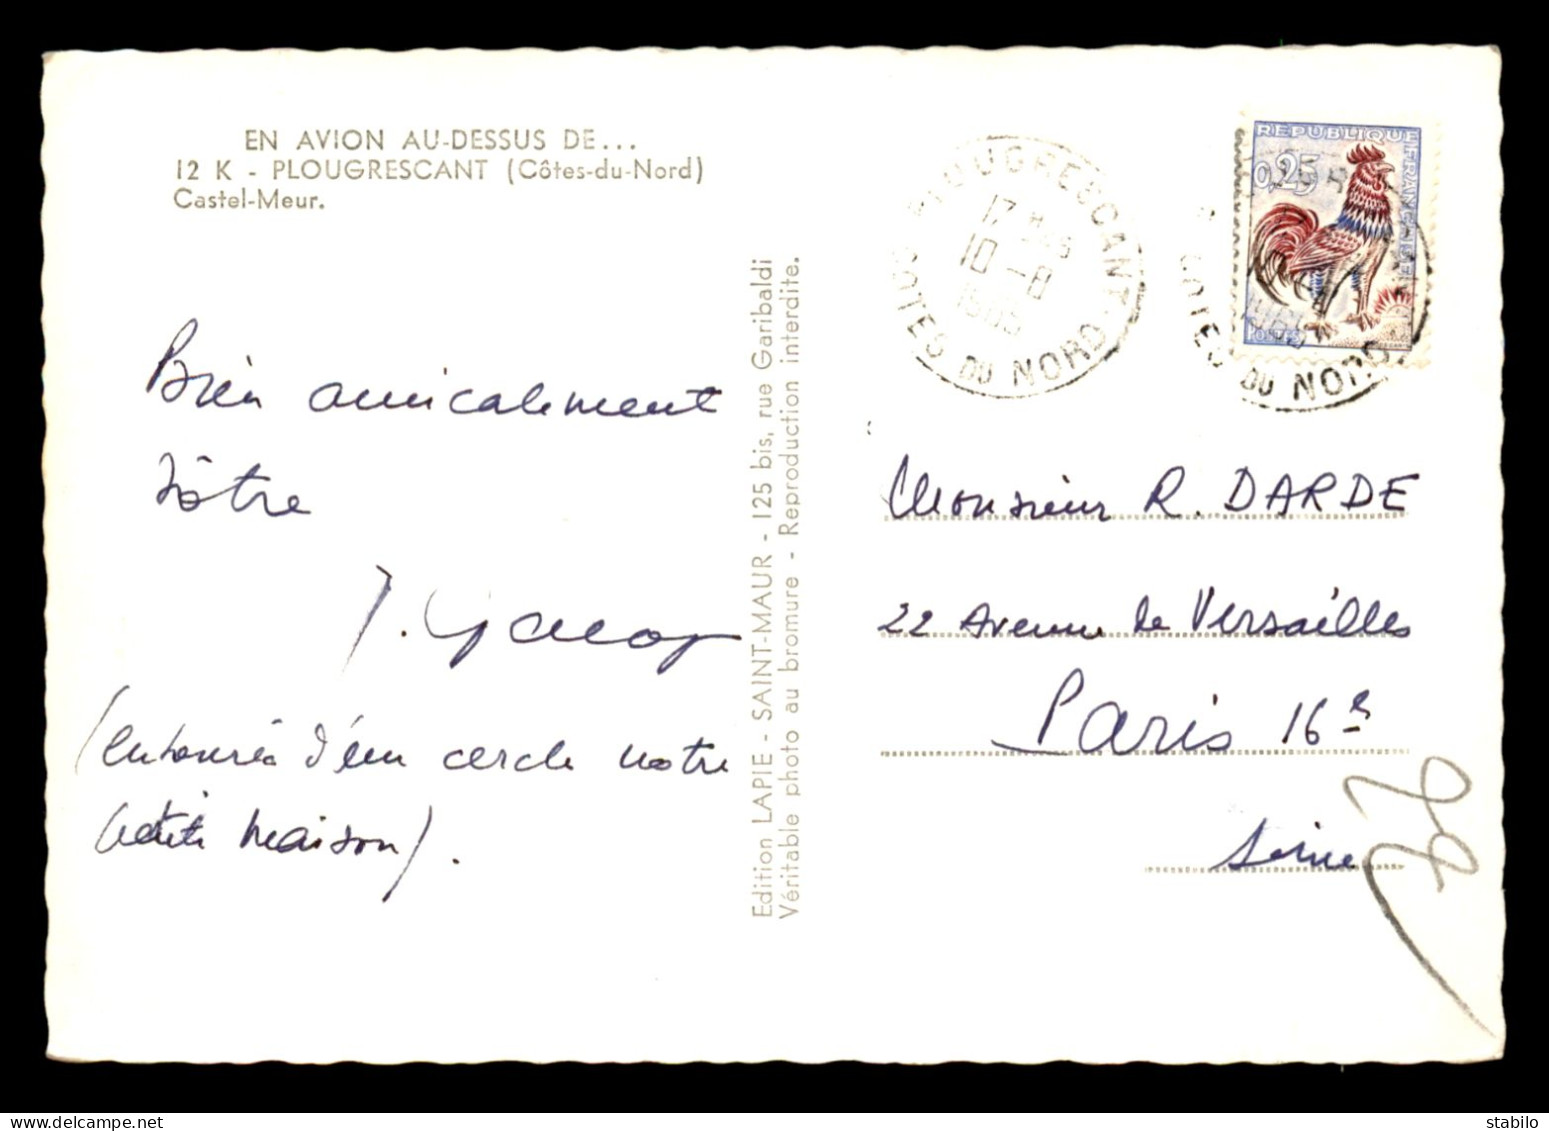 EN AVION AU-DESSUS DE...
12 K - PLOUGRESCANT (Côtes-du-Nord)
Castel-Meur.
Bien amicalement
vôtre
J.
(entourée d'un cercle notre
petite maison).
Edition LAPIE - SAINT-MAUR - 125 bis, rue Garibaldi
Véritable photo au bromure - Reproduction interdite.
PLOUGRESCANT
17 H
10-8
1965
COTES DU NORD
REPUBLIQUE FRANÇAISE
0,25
POSTES
COTES DU NORD
Monsieur R. DARDE
22 Avenue de Versailles
Paris 16e
Seine
delcampe.net
stabilo